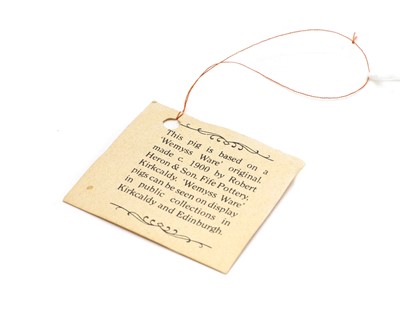 This pig is based on a
'Wemyss Ware' original
made c. 1900 by Robert
Heron & Son. Fife Pottery,
Kirkcaldy. 'Wemyss Ware'
pigs can be seen on display
in public collections in
Kirkcaldy and Edinburgh.